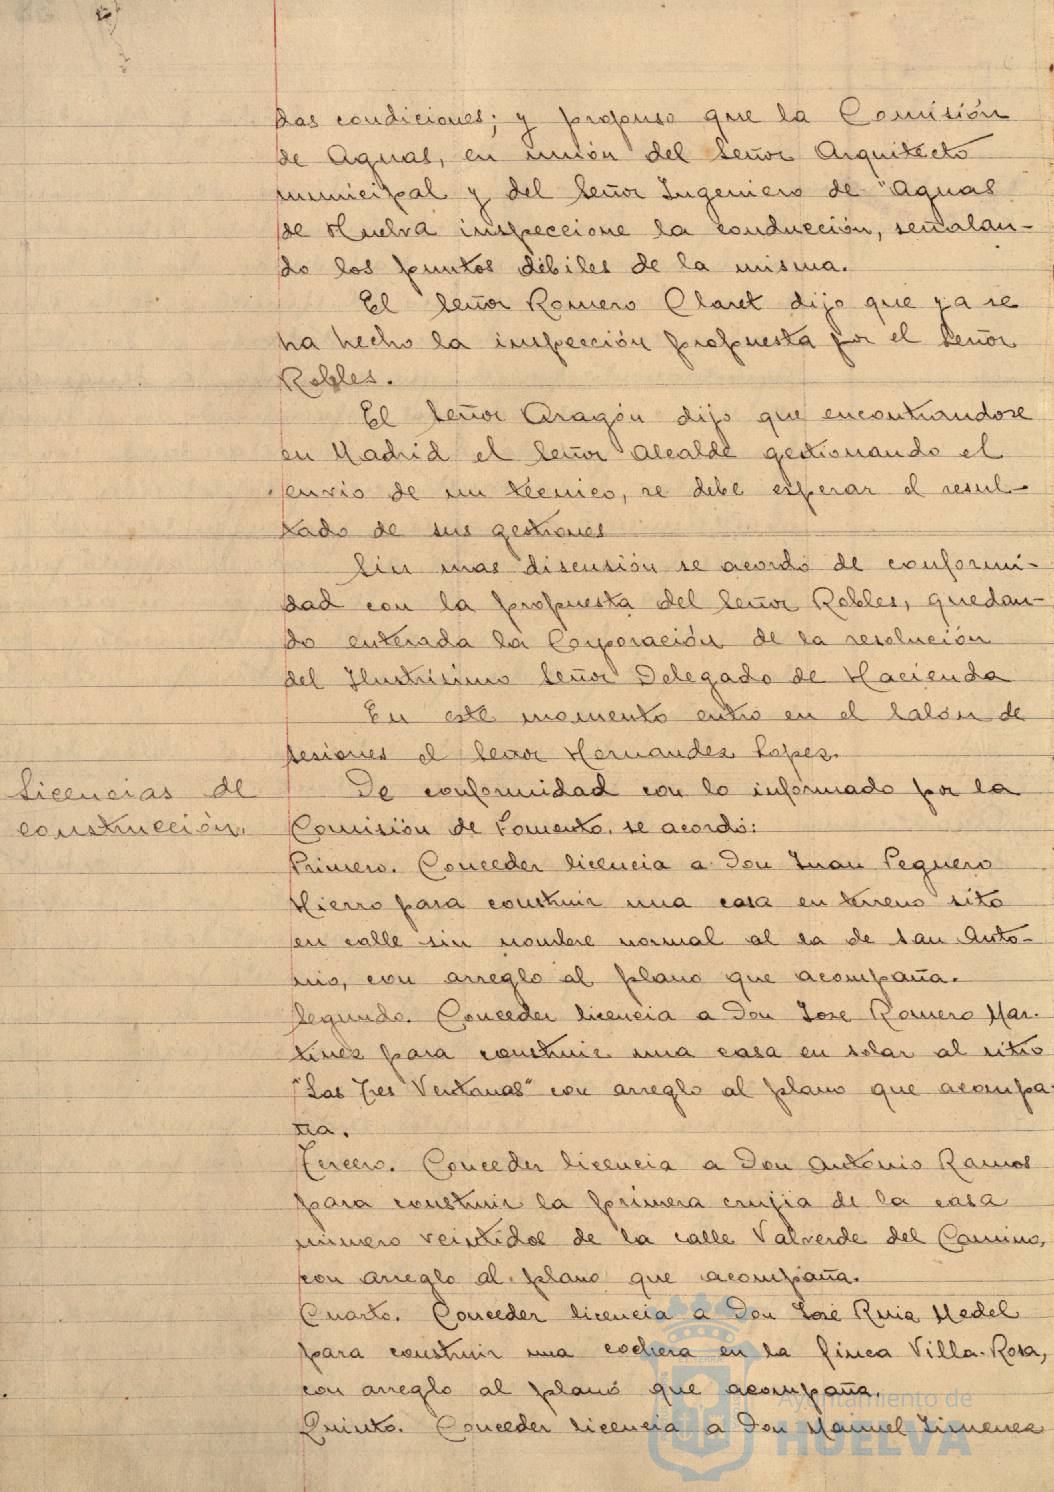 das condiciones; y propuso que la Comisión
de Aguas, en unión del Señor Arquitecto
municipal y del Señor Ingeniero de "Aguas
de Huelva inspeccione la conducción, señalan-
do los puntos débiles de la misma.
El Señor Romero Claret dijo que ya se
ha hecho la inspección propuesta por el Señor
Robles.
El Señor Aragón dijo que encontrandose
en Madrid el Señor Alcalde gestionando el
envio de un técnico, se debe esperar el resul-
tado de sus gestiones
Sin mas discusión se acordó de conformi-
dad con la propuesta del Señor Robles, quedan-
do enterada la Corporación de la resolución
del Ilustrísimo Señor Delegado de Hacienda
En este momento entró en el Salón de
sesiones el Señor Hernandez Lopez.
Licencias de
construcción.
De conformidad con lo informado por la
Comisión de Fomento, se acordó:
Primero. Conceder licencia a Don Juan Peguero
Hierro para construir una casa en terreno sito
en calle sin nombre normal al la de San Anto-
nio, con arreglo al plano que acompaña.
Segundo. Conceder licencia a Don Jose Romero Mar-
tinez para construir una casa en solar al sitio
"Las Tres Ventanas" con arreglo al plano que acompa-
ña.
Tercero. Conceder licencia a Don Antonio Ramos
para construir la primera crujia de la casa
número veintidos de la calle Valverde del Camino,
con arreglo al plano que acompaña.
Cuarto. Conceder licencia a Don José Ruiz Medel
para construir una cochera en la finca Villa-Rosa,
con arreglo al plano que acompaña.
Quinto. Conceder licencia a Don Manuel Jimenez
Ayuntamiento de
HUELVA